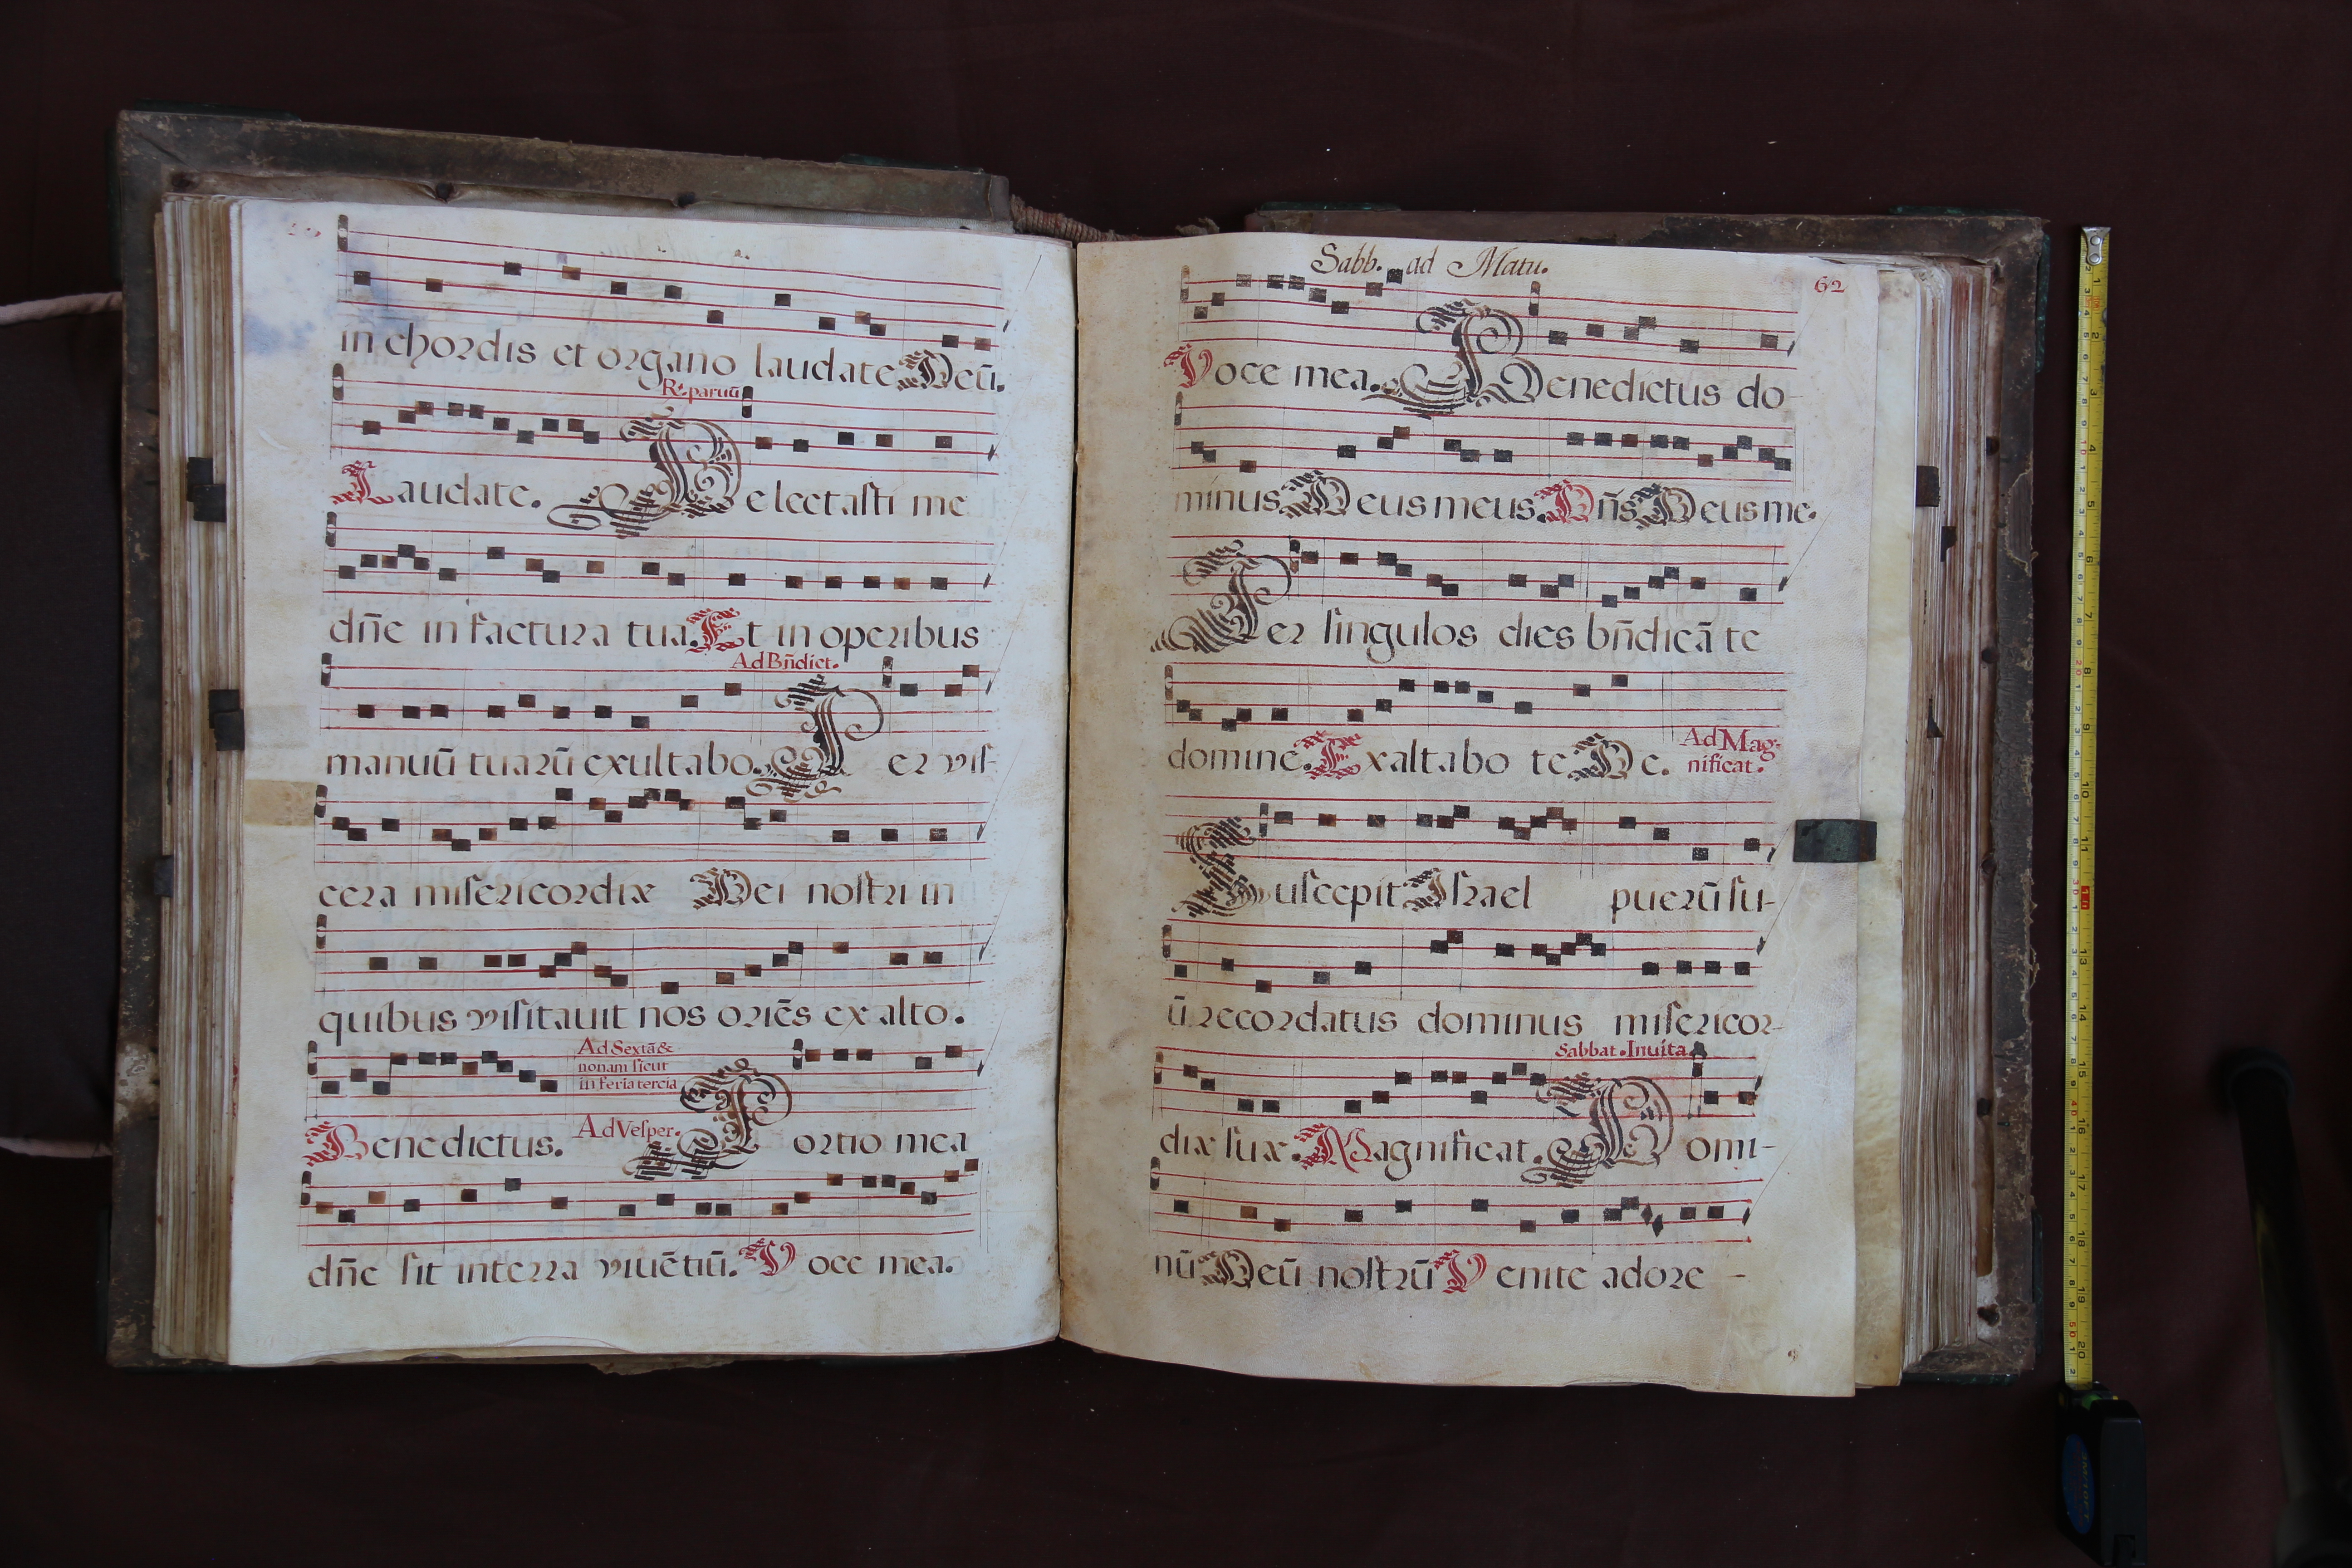 in chordis et organo laudate Deū.
R. paruū
Laudate. Delectasti me
dn̄e in factura tua. Et in operibus
Ad Bn̄dict.
manuū tuarū exultabo. Per viſ-
cera miſericordiæ Dei noſtri in
quibus viſitauit nos oriēs ex alto.
Ad Sextā &
nonam ſicut
in feria tercia
Benedictus. Ad Veſper. Portio mea
dn̄e ſit in terra viuētiū. Voce mea.
Sabb. ad Matu.
62
Voce mea. Benedictus do-
minus Deus meus. Dn̄s Deus me.
Per ſingulos dies bn̄dicā te
domine. Exaltabo te De. Ad Mag-
nificat.
Suſcepit Iſrael puerū ſu-
ū recordatus dominus miſericor-
Sabbat. Inuita
diæ ſuæ. Magnificat. Domi-
nū Deū noſtrū Venite adore-